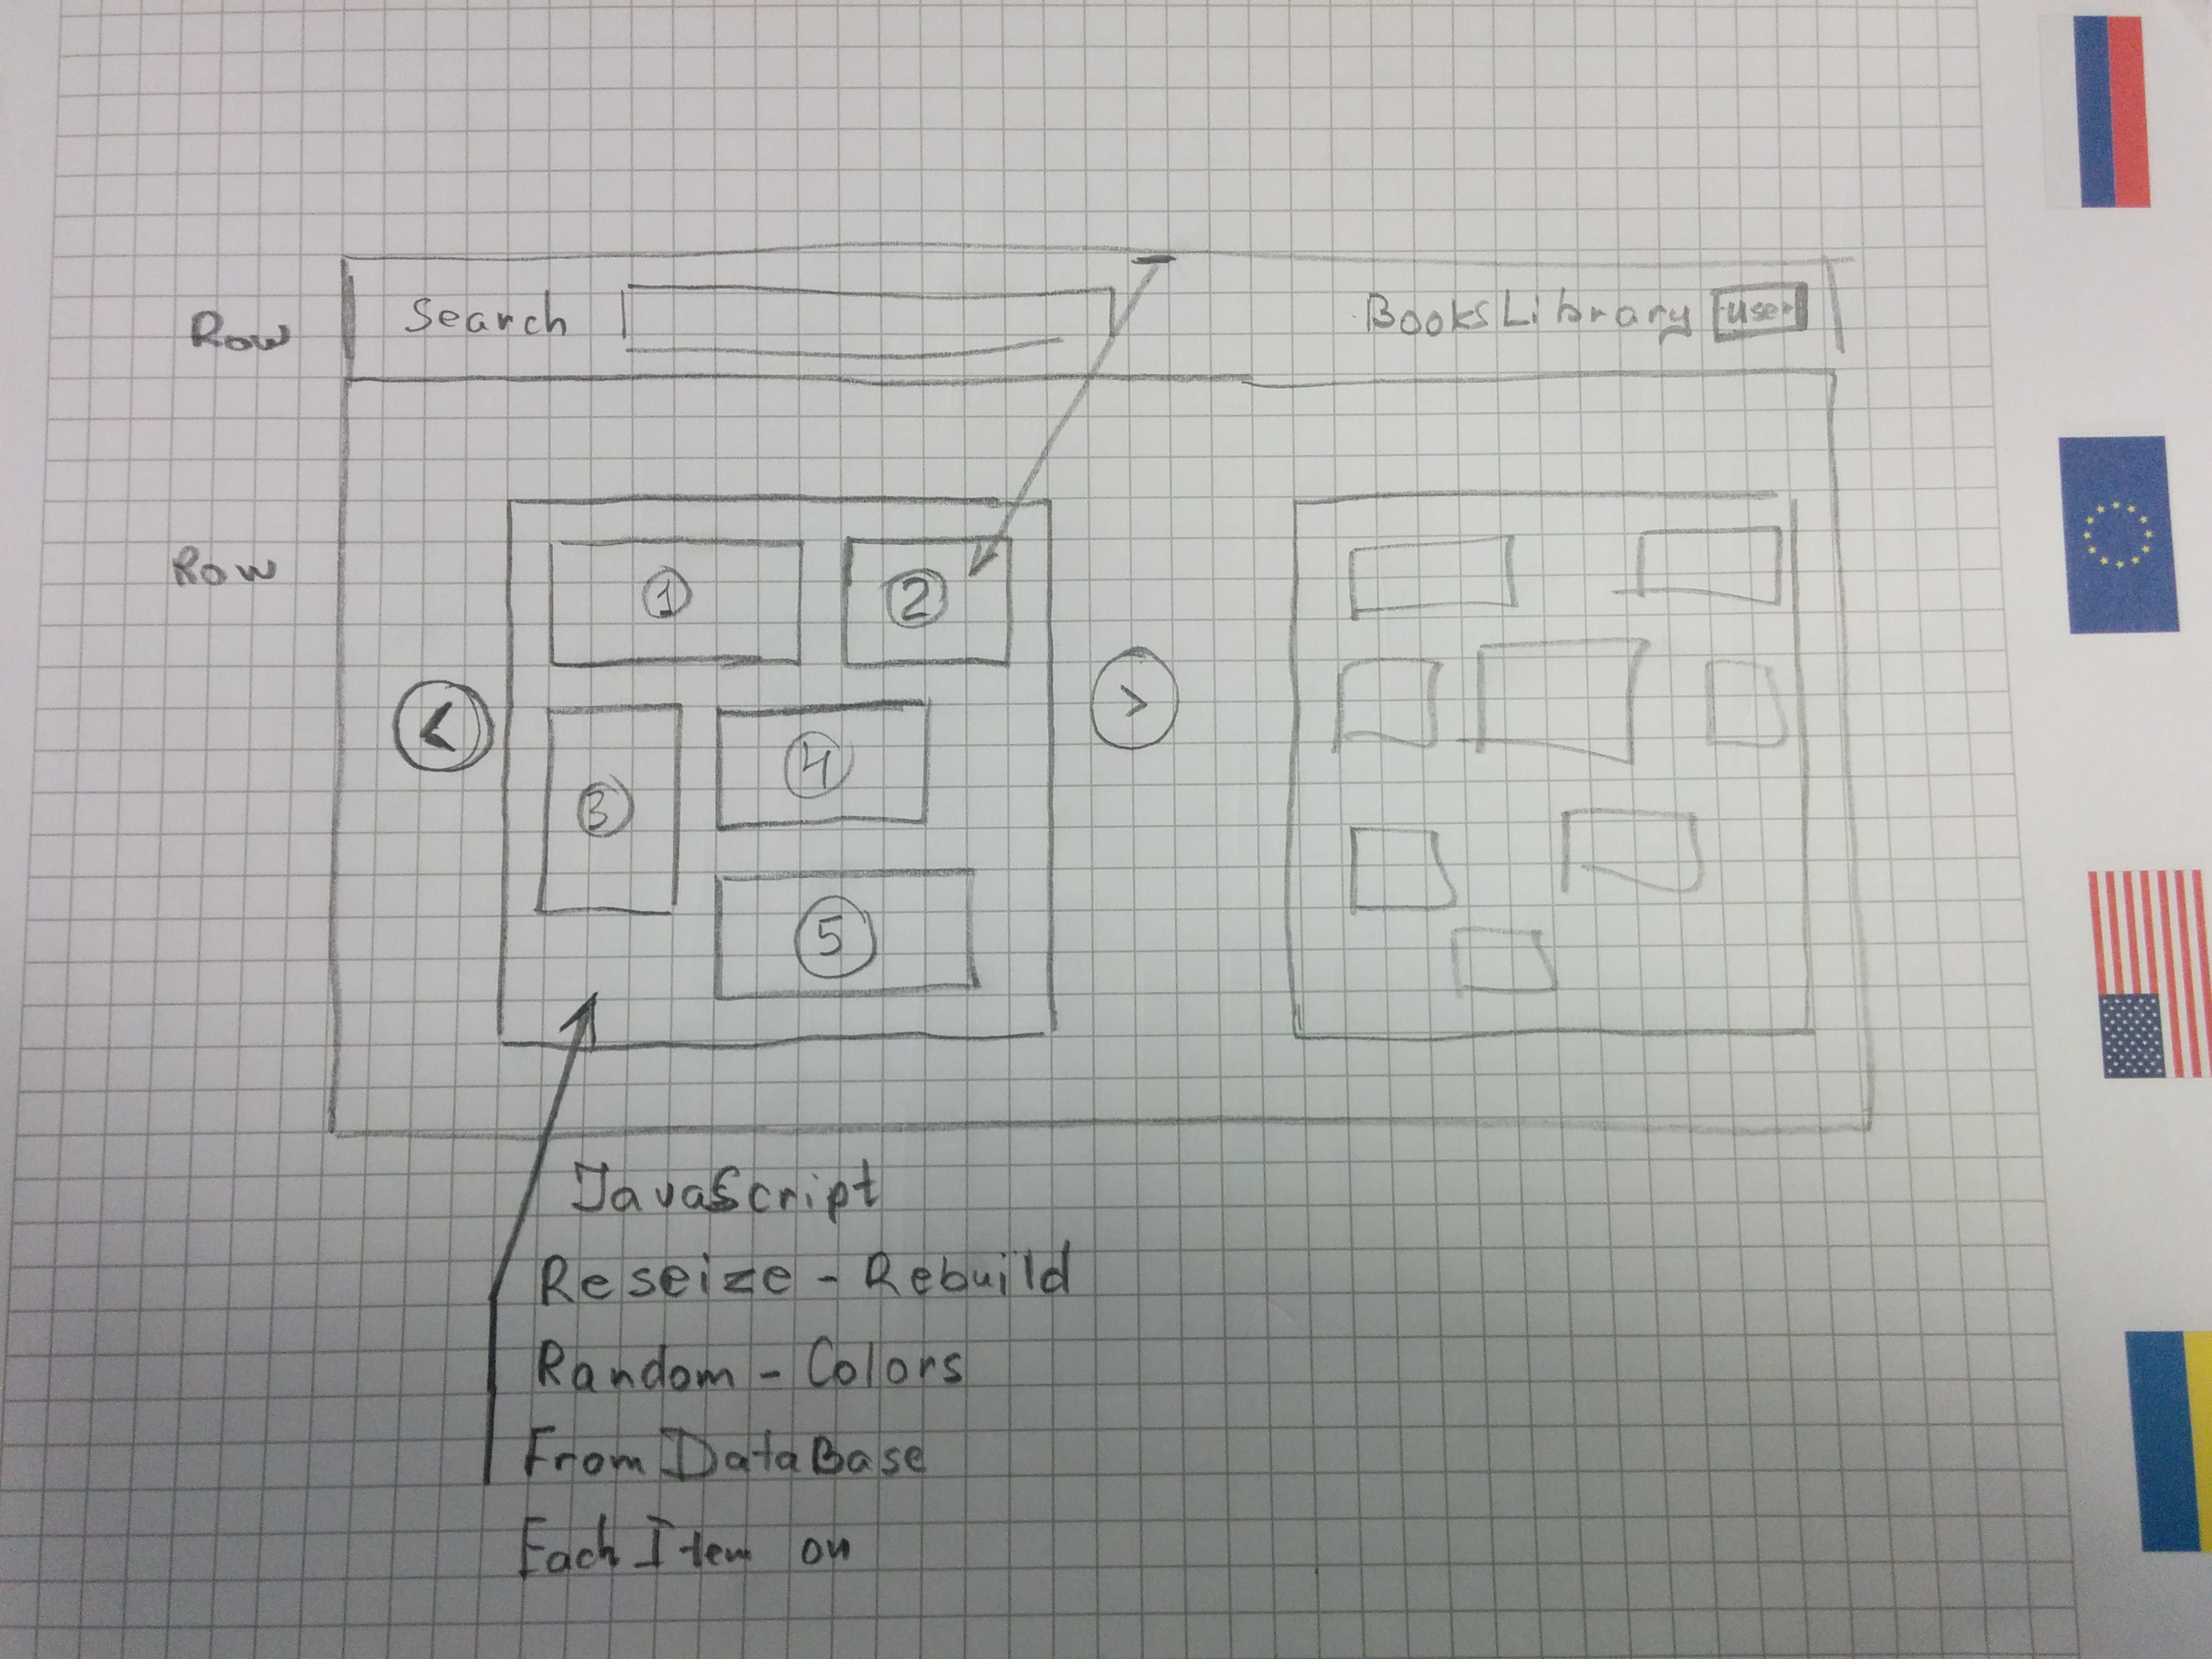 Row
Search
BooksLibrary
user
Row
1
2
<
>
3
4
5
JavaScript
Reseize - Rebuild
Random - Colors
From DataBase
Each Item on